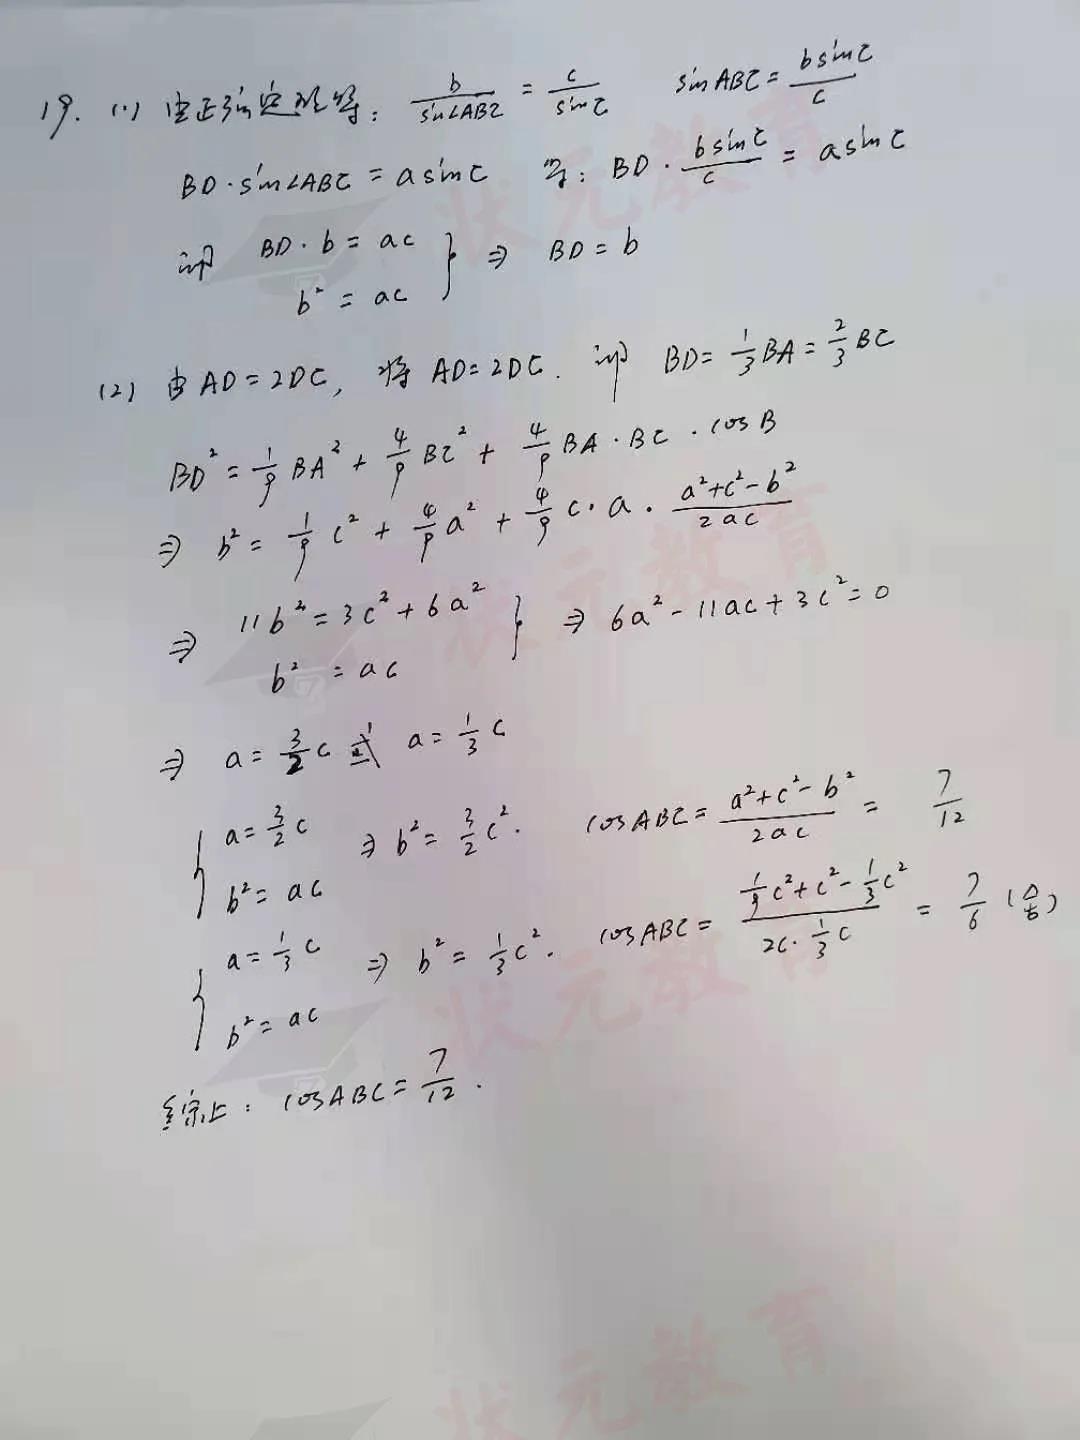 19. (1) 由正弦定理得: b/sin∠ABC = c/sinC sinABC = bsinC/c
BD·sin∠ABC = asinC 得: BD · bsinC/c = asinC
即 BD·b = ac } ⇒ BD = b
b² = ac
(2) 由 AD = 2DC, 将 AD = 2DC. 即 BD = 1/3 BA = 2/3 BC
BD² = 1/9 BA² + 4/9 BC² + 4/9 BA·BC·cosB
⇒ b² = 1/9 c² + 4/9 a² + 4/9 c·a· (a²+c²-b²)/2ac
⇒ 11b² = 3c² + 6a² } ⇒ 6a² - 11ac + 3c² = 0
b² = ac
⇒ a = 3/2 c 或 a = 1/3 c
{ a = 3/2 c ⇒ b² = 3/2 c². cosABC = (a²+c²-b²)/2ac = 7/12
b² = ac
{ a = 1/3 c ⇒ b² = 1/3 c². cosABC = (1/9 c²+c²-1/3 c²)/(2c·1/3 c) = 7/6 (舍)
b² = ac
综上: cosABC = 7/12.
状元教育
状元教育
状元教育
状元教育